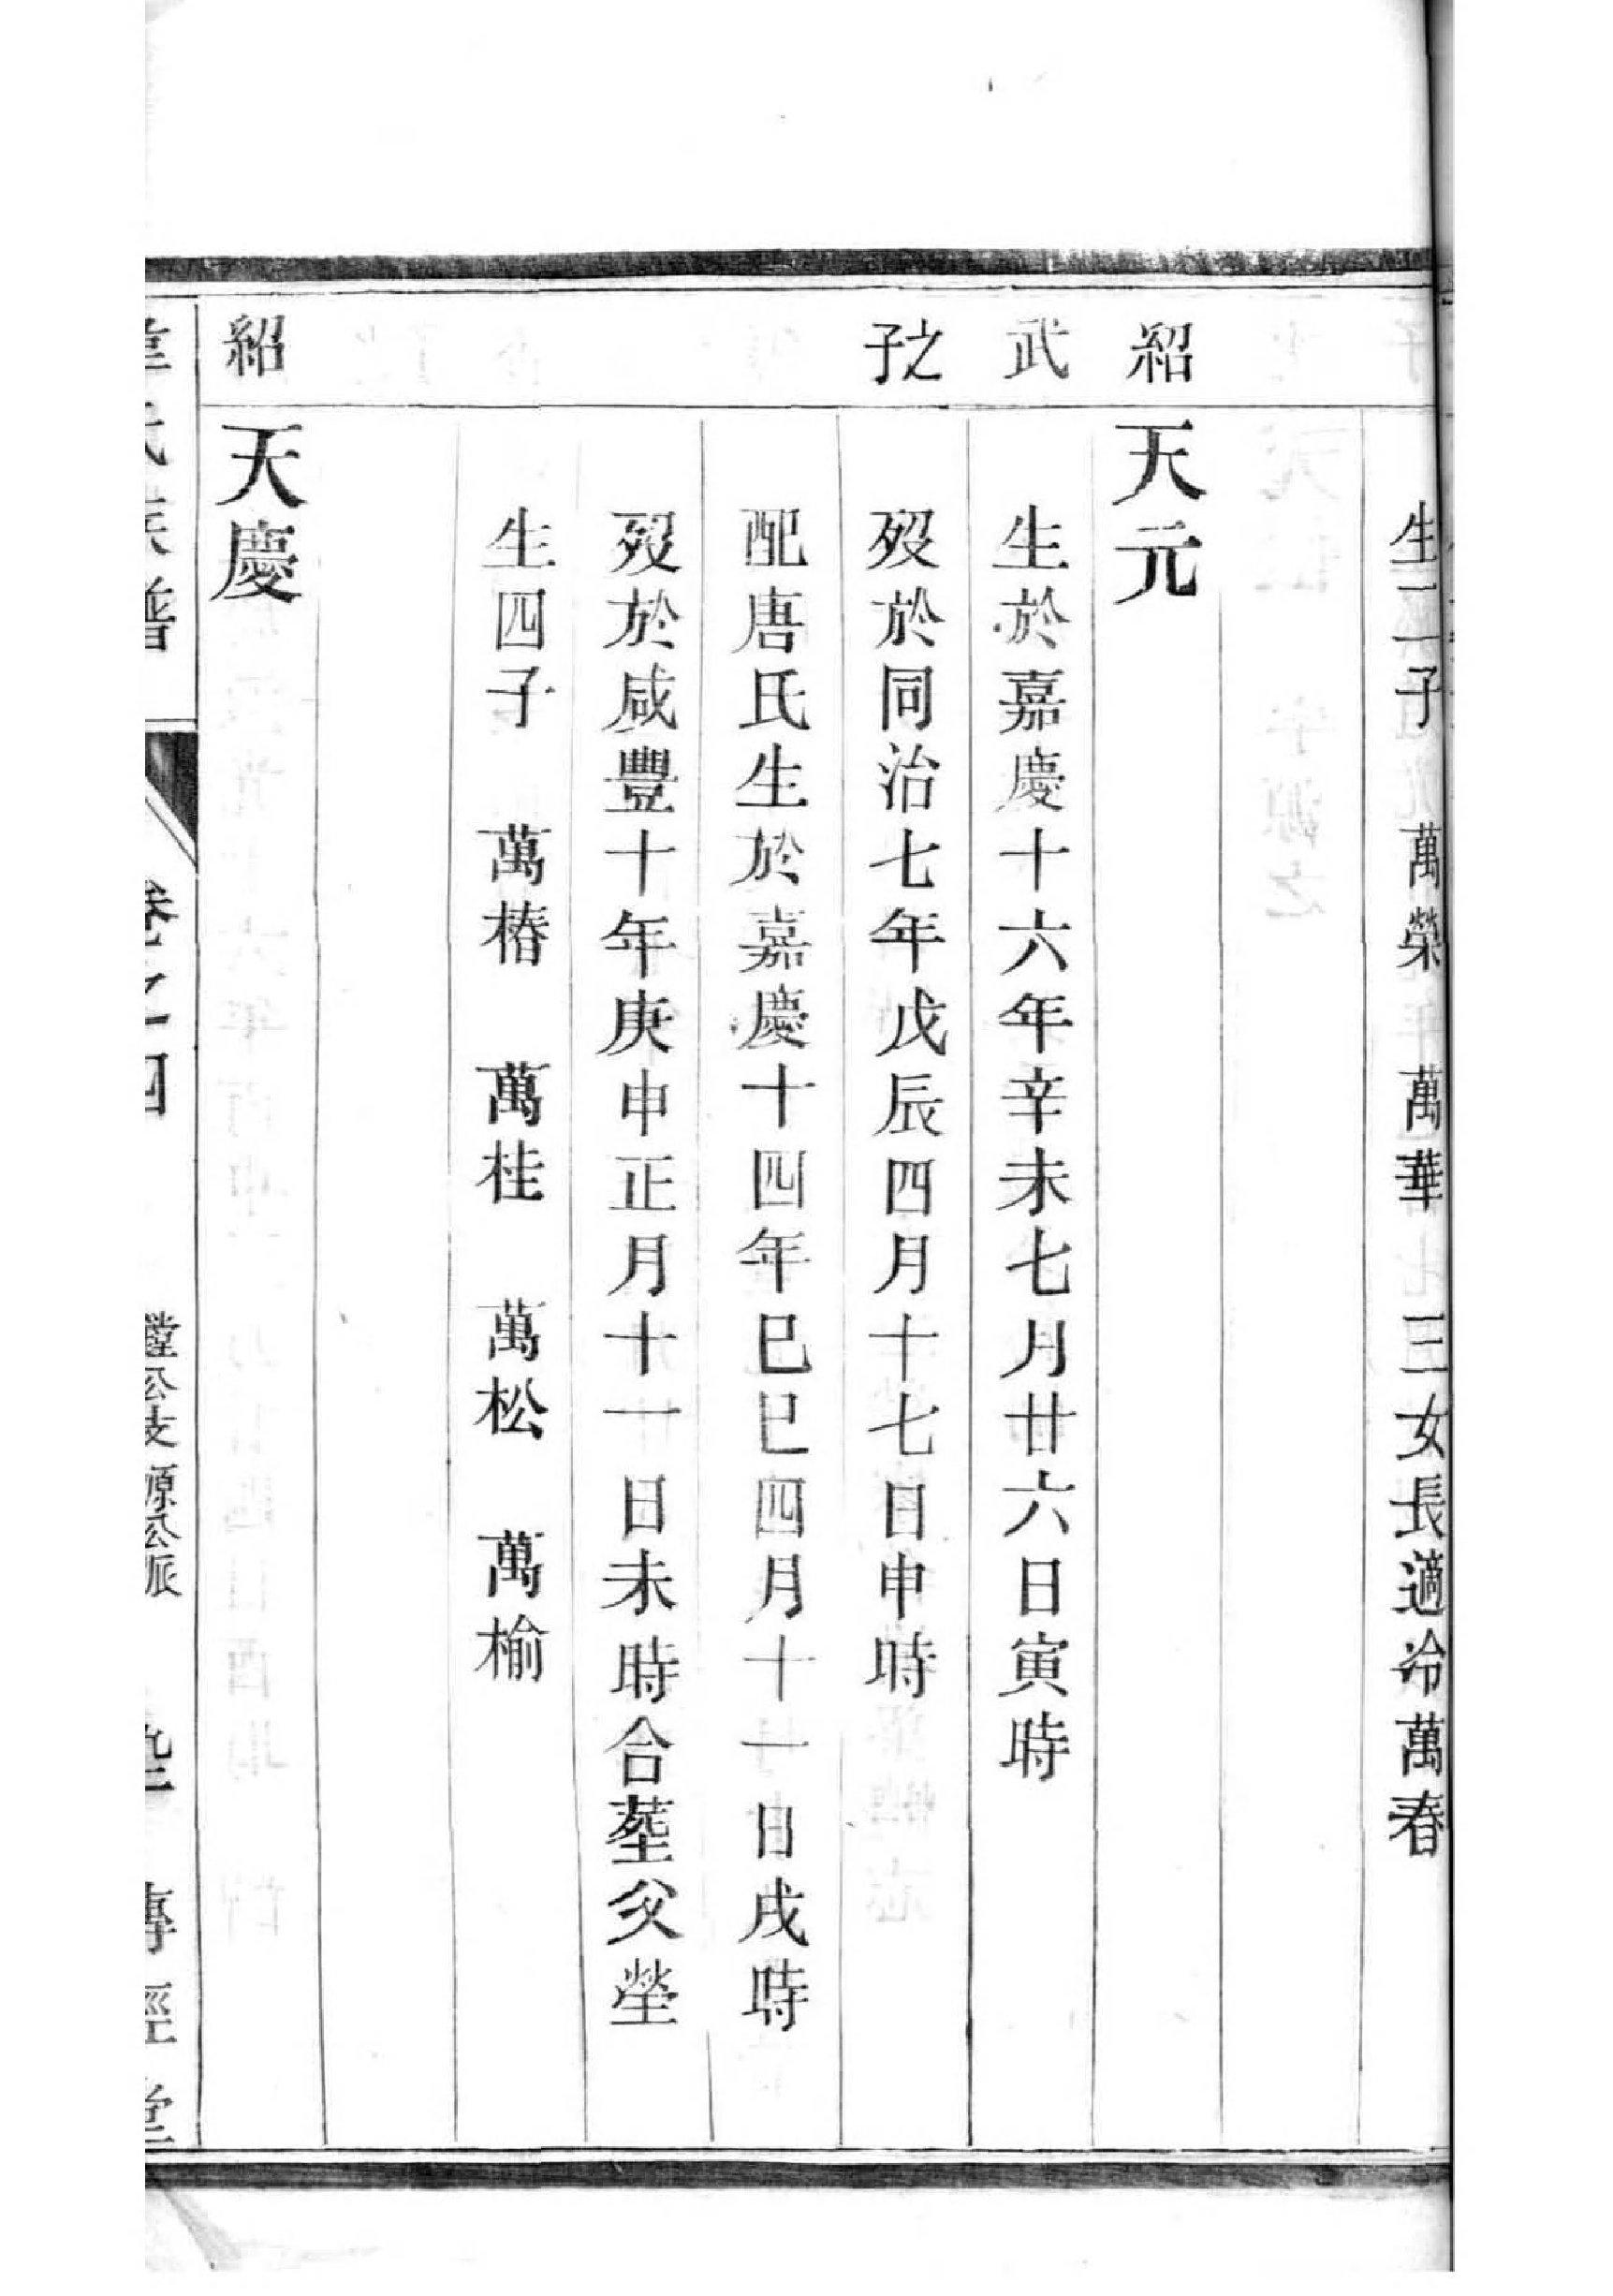 生二子　萬榮　萬華　三女長適冷萬春
紹　天元
武　生於嘉慶十六年辛未七月廿六日寅時
之子　歿於同治七年戊辰四月十七日申時
配唐氏生於嘉慶十四年己巳四月十一日戌時
歿於咸豐十年庚申正月十一日未時合塟父塋
生四子　萬椿　萬桂　萬松　萬榆
紹　天慶
氏族譜　卷之四　瑩公支源公派　傳經堂